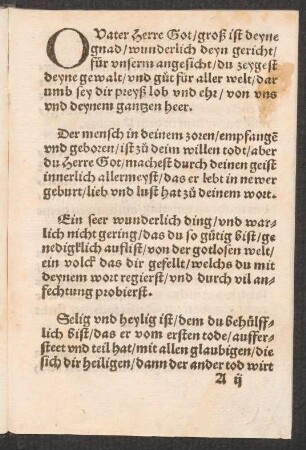 O Vater Herre Got/groß ist deyne
gnad/wunderlich deyn gericht/
für vnserm angesicht/du zeygest
deyne gewalt/vnd güt für aller welt/dar
umb sey dir preyß lob vnd ehr/von vns
vnd deynem gantzen heer.
Der mensch in deinem zoren/empfangē
vnd geboren/ist zů deim willen todt/aber
du Herre Got/machest durch deinen geist
innerlich allermeyst/das er lebt in newer
geburt/lieb vnd lust hat zů deinem wort.
Ein seer wunderlich ding/vnd war-
lich nicht gering/das du so gütig bist/ge
nedigklich auflist/von der gotlosen welt/
ein volck das dir gefellt/welchs du mit
deynem wort regierst/vnd durch vil an-
fechtung probierst.
Selig vnd heylig ist/dem du behülff-
lich bist/das er vom ersten tode/auffer-
steet vnd teil hat/mit allen glaubigen/die
sich dir heiligen/dann der ander tod wirt
A ij